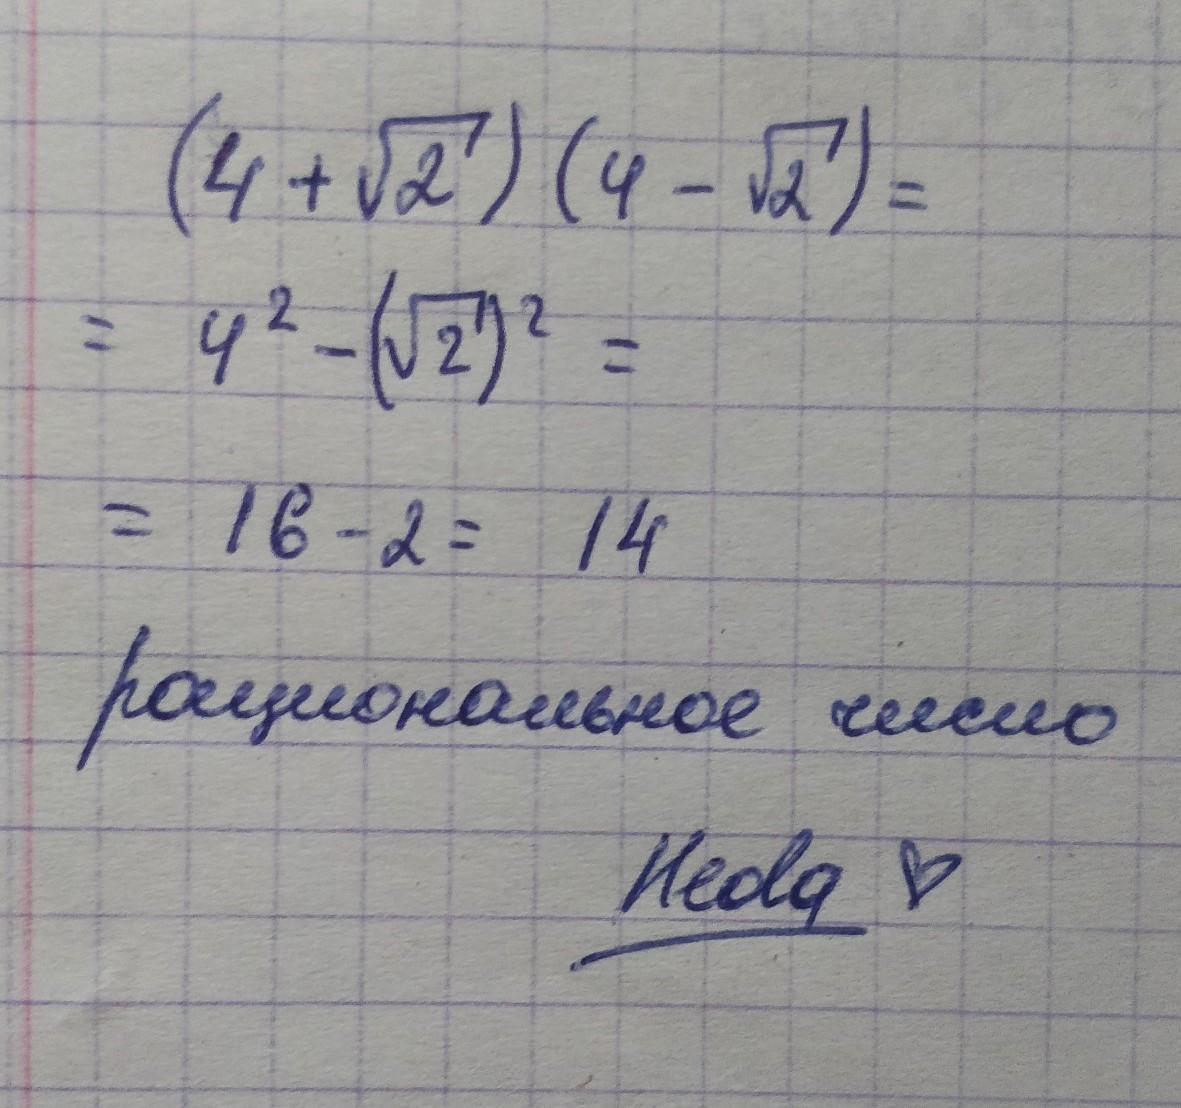 (4 + √2) (4 - √2) =
= 4² - (√2)² =
= 16 - 2 = 14
рациональное число
Hedq ♡